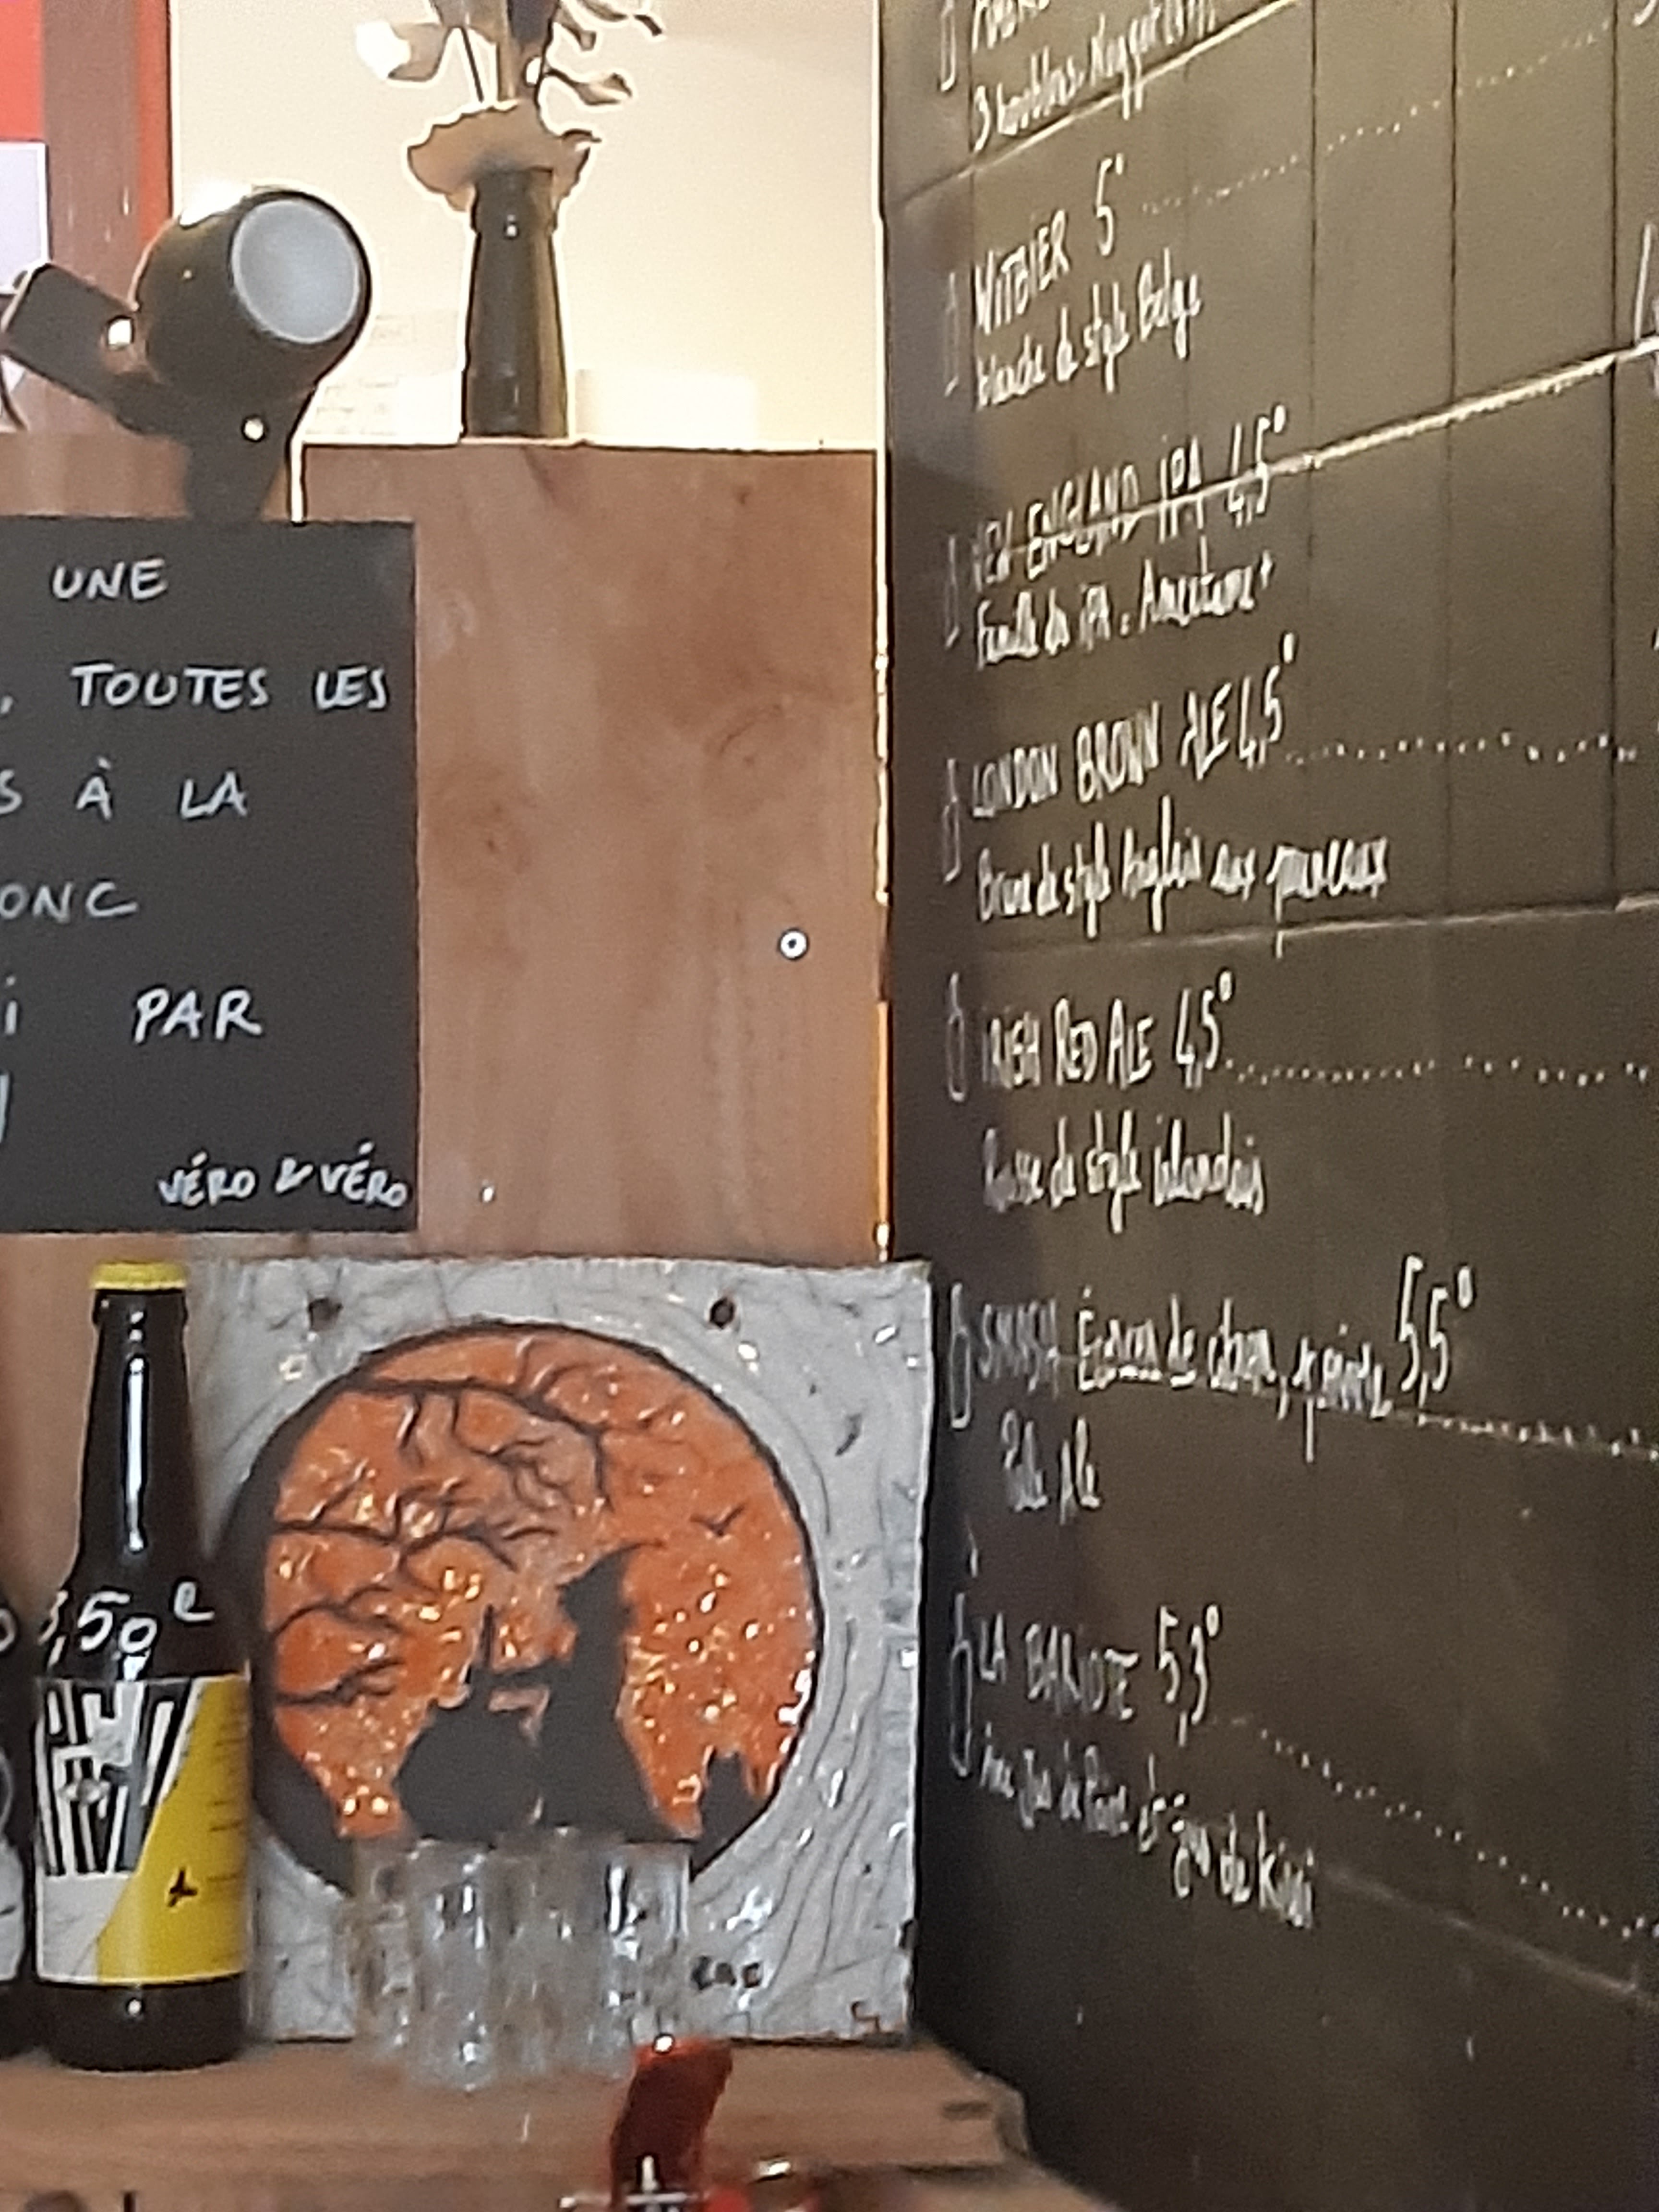 UNE
, TOUTES LES
S À LA
ONC
i PAR
VÉRO & VÉRO
,50 e
3 houblons
WITBIER 5°
blanche de style Belge
NEW ENGLAND IPA 4,5°
Famille des iPA. Amertume +
LONDON BROWN ALE 4,5°
Brune de style Anglais aux pruneaux
IRISH RED ALE 4,5°
Rousse de style irlandais
SMASH Écorces de citron, 5,5°
Pale Ale
LA 5,3°
jus de Poire et jus de kiwi